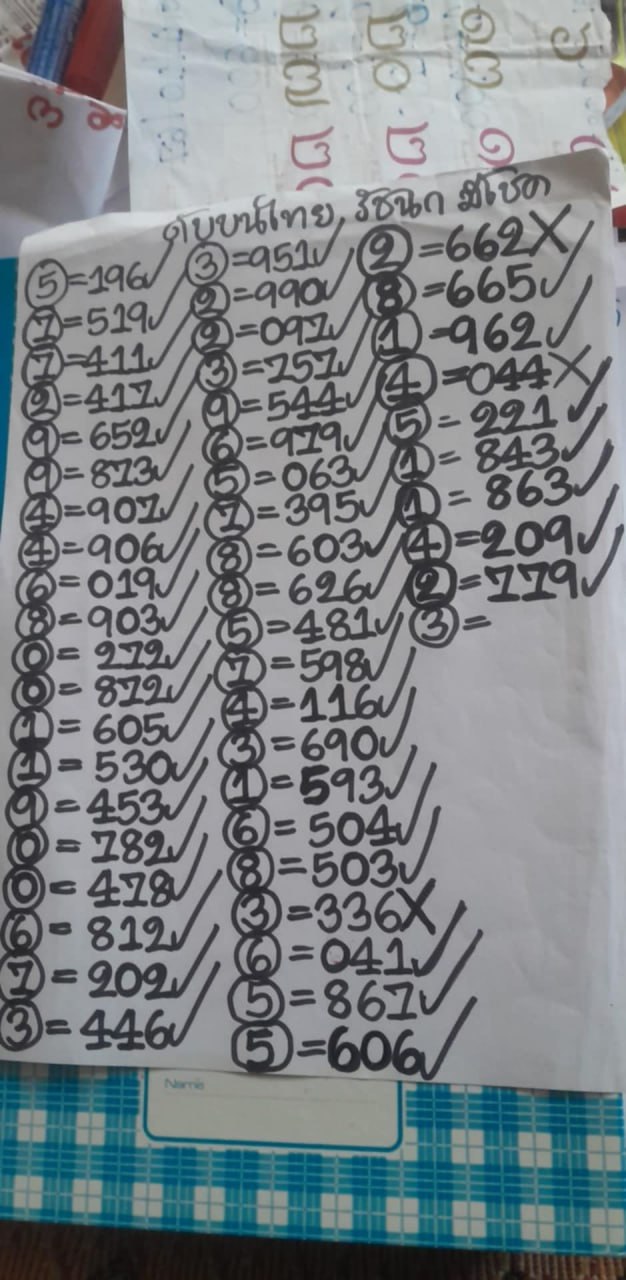 ดับบนไทย, รัชนก มีโชค
5=196✓
7=519✓
7=411✓
2=417✓
9=652✓
9=873✓
4=907✓
4=906✓
6=019✓
8=903✓
0=272✓
0=872✓
1=605✓
1=530✓
9=453✓
0=782✓
0=478✓
6=812✓
7=202✓
3=446✓
3=951✓
2=990✓
2=097✓
3=757✓
9=544✓
6=979✓
5=063✓
7=395✓
8=603✓
8=626✓
5=481✓
7=598✓
4=116✓
3=690✓
1=593✓
6=504✓
8=503✓
3=336X
6=041✓
5=867✓
5=606✓
2=662X
8=665✓
1=962✓
4=044X
5=221✓
1=843✓
1=863✓
4=209✓
2=779✓
3=
๖
๑๓
๒๐
๒๗
Name